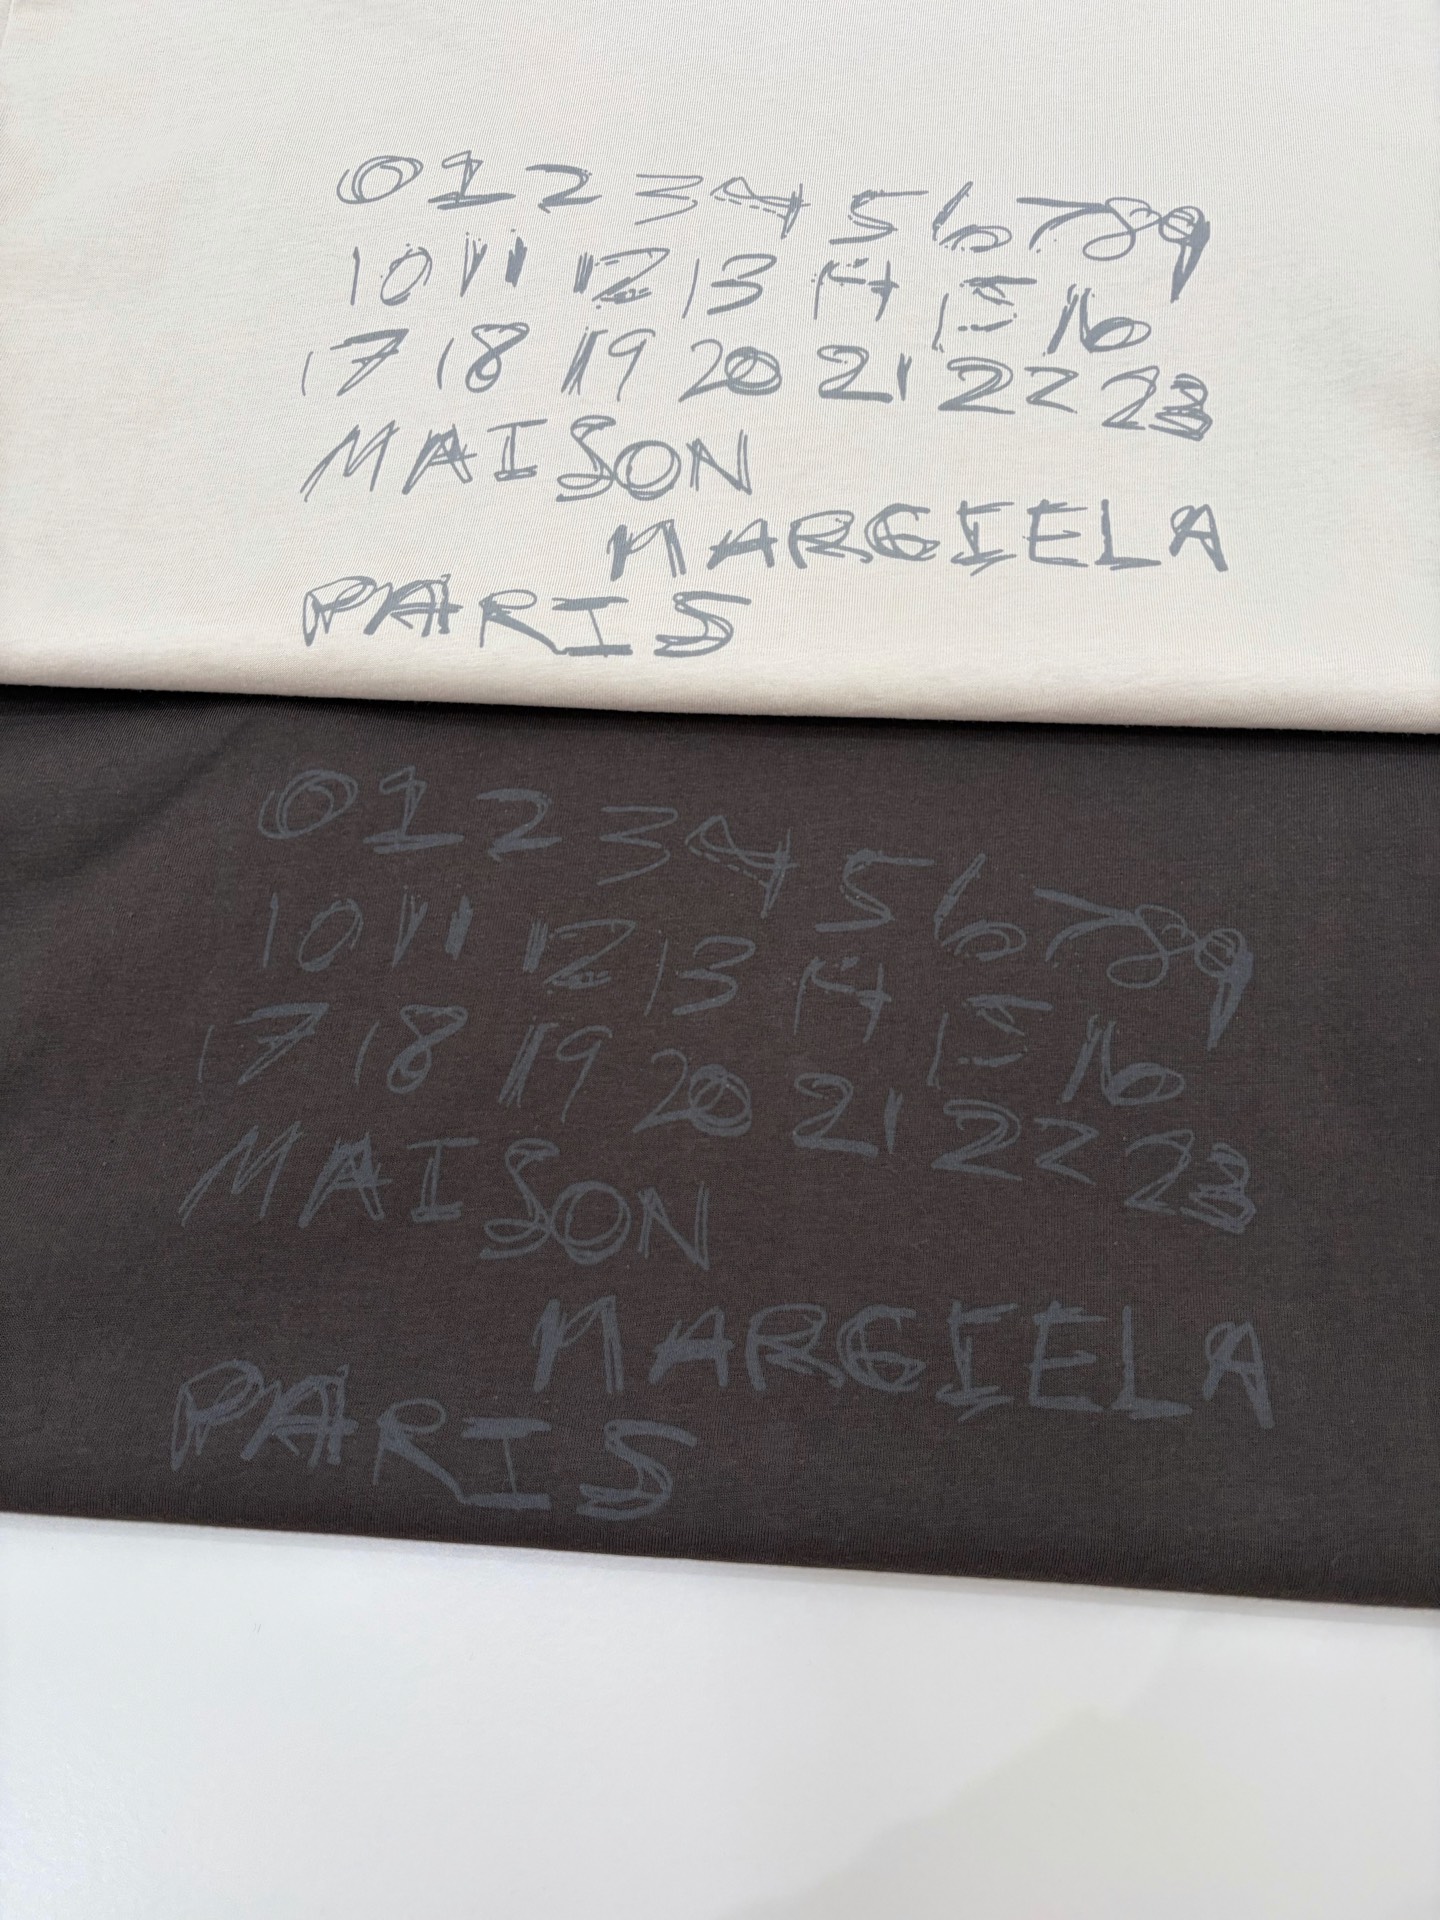 0 1 2 3 4 5 6 7 8 9
10 11 12 13 14 15 16
17 18 19 20 21 22 23
MAISON
MARGIELA
PARIS
0 1 2 3 4 5 6 7 8 9
10 11 12 13 14 15 16
17 18 19 20 21 22 23
MAISON
MARGIELA
PARIS